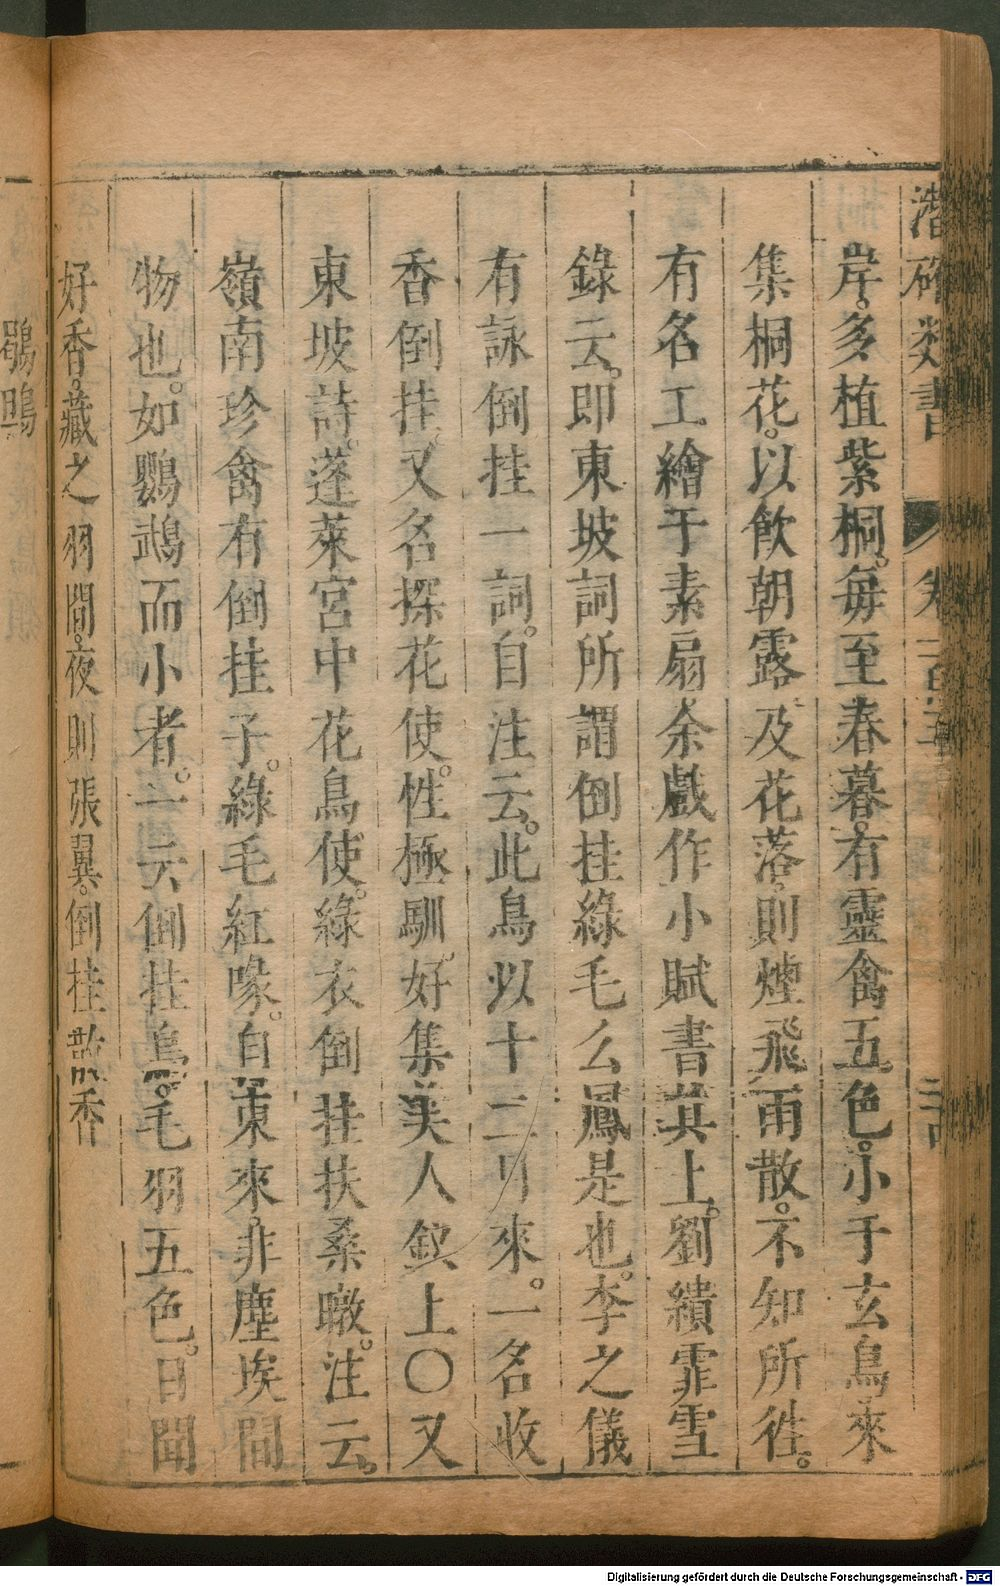 潛確類書
岸。多植紫桐。每至春暮。有靈禽五色。小于玄鳥來
集桐花。以飲朝露。及花落。則煙飛雨散。不知所徃。
有名工繪于素扇余戲作小賦書其上。劉績霏雪
錄云。即東坡詞所謂倒挂綠毛么鳳是也。李之儀
有詠倒挂一詞。自注云。此鳥以十二月來。一名收
香倒挂。又名探花使。性極馴。好集美人釵上〇又
東坡詩。蓬萊宮中花鳥使。綠衣倒挂扶桑暾。注云。
嶺南珍禽有倒挂子。綠毛紅喙。自東來。非塵埃間
物也。如鸚鵡而小者。一云倒挂鳥。毛羽五色。日聞
好香。藏之羽間。夜則張翼。倒挂散香
Digitalisierung gefördert durch die Deutsche Forschungsgemeinschaft - DFG